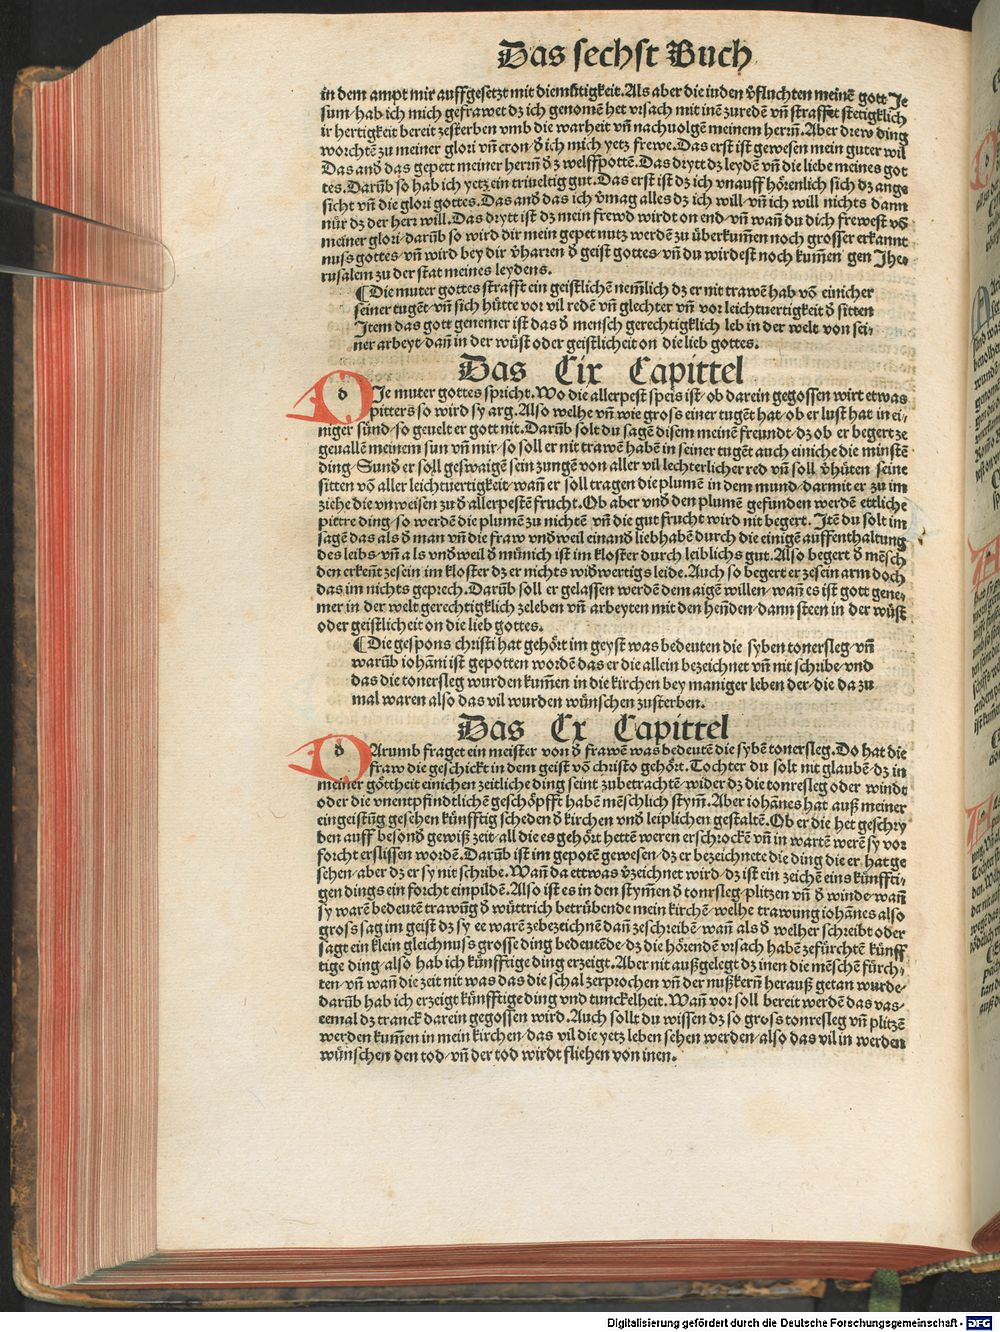 Das sechst Buch
in dem ampt mir auffgesetzt mit diemůtigkeit. Als aber die iuden v̄fluchten meinē gott Je
sum/ hab ich mich gefrawet dz ich genomē het vrsach mit inē zuredē vn̄ straffet stetigklich
ir hertigkeit bereit zesterben vmb die warheit vn̄ nachuolgē meinem herrn̄. Aber drew ding
worchtē zu meiner glori vn̄ cron/ d̄ ich mich yetz frewe. Das erst ist gewesen mein guter wil
Das and̄ das gepett meiner herrn̄ d̄ z welffpottē. Das drytt dz leydē vn̄ die liebe meines got
tes. Darūb so hab ich yetz ein triueltig gut. Das erst ist dz ich vnauff hörenlich sich dz ange
sicht vn̄ die glori gottes. Das and̄ das ich v̄mag alles dz ich will/ vn̄ ich will nichts dann
nür dz der herr will. Das drytt ist dz mein frewd wirdt on end/ vn̄ wan̄ du dich frewest vō
meiner glori/ darūb so wird dir mein gepet nutz werdē zu überkum̄en noch grosser erkannt
nuss gottes/ vn̄ wird bey dir v̄harren d̄ geist gottes/ vn̄ du wirdest noch kum̄en gen Jhe-
rusalem zu der stat meines leydens.
¶ Die muter gottes strafft ein geistlichē nem̄lich dz er nit trawē hab vō einicher
seiner tugēt/ vn̄ sich hütte vor vil redē vn̄ glechter vn̄ vor leichtuertigkeit d̄ sitten
Jtem das gott genemer ist das d̄ mensch gerechtigklich leb in der welt von sei/
ner arbeyt/ dan̄ in der wüst oder geistlicheit on die lieb gottes.
Das Cix Capittel
d Je muter gottes spricht. Wo die allerpest speis ist/ ob darein gegossen wirt etwas
pitters so wird sy arg. Also welhe vn̄ wie gross einer tugēt hat/ ob er lust hat in ei/
niger sünd/ so geuelt er gott nit. Darūb solt du sagē disem meinē freundt/ dz ob er begert ze
geuallē meinem sun vn̄ mir/ so soll er nit trawē habē in seiner tugēt auch einiche die minstē
ding/ Sund̄ er soll geswaigē sein zungē von aller vil lechterlicher red vn̄ soll v̄hüten seine
sitten vō aller leichtuertigkeit/ wan̄ er soll tragen die plumē in dem mund/ darmit er zu im
ziehe die vnweisen zu d̄ allerpestē frucht. Ob aber vnd̄ den plumē gefunden werdē ettliche
pittre ding/ so werdē die plumē zu nichtē vn̄ die gut frucht wird nit begert. Jtē du solt im
sagē das als d̄ man vn̄ die fraw vnd̄weil einand̄ liebhabē durch die einigē auffenthaltung
des leibs/ vn̄ als vnd̄weil d̄ münich ist im kloster durch leiblichs gut. Also begert d̄ mēsch
den erken̄t zesein im kloster dz er nichts wid̄wertigs leide. Auch so begert er zesein arm doch
das im nichts geprech. Darūb soll er gelassen werdē dem aigē willen/ wan̄ es ist gott gene/
mer in der welt gerechtigklich zeleben vn̄ arbeyten mit den hen̄den/ dann steen in der wüst
oder geistlicheit on die lieb gottes.
¶ Die gespons christi hat gehört im geyst was bedeuten die syben tonersleg/ vn̄
warūb iohāni ist gepotten wordē das er die allein bezeichnet vn̄ nit schribe/ vnd
das die tonersleg wurden kum̄en in die kirchen bey maniger leben der/ die da zu
mal waren also das vil wurden wünschen zusterben.
Das Cx Capittel
d Arumb fraget ein meister von d̄ frawē was bedeutē die sybē tonersleg. Do hat die
fraw die geschickt in dem geist vō christo gehört. Tochter du solt nit glaubē/ dz in
meiner göttheit einichen zeitliche ding seint zubetrachtē/ wider dz die tonresleg oder windt
oder die vnentpfindtlichē geschöpfft habē mēschlich stym̄. Aber iohānes hat auß meiner
eingeistūg gesehen künfftig scheden d̄ kirchen vnd̄ leiplichen gestaltē. Ob er die het geschry
ben auff besond̄ gewiß zeit/ all die es gehört hettē weren erschrockē vn̄ in wartē werē sy vor
forcht erslissen wordē. Darūb ist im gepotē gewesen/ dz er bezeichnete die ding die er hat ge
sehen/ aber dz er sy nit schribe. Wan̄ da ettwas v̄zeichnet wird/ dz ist ein zeichē eins künffti/
gen dings ein forcht einpildē. Also ist es in den stym̄en d̄ tonrsleg/ plitzen vn̄ d̄ winde/ wan̄
sy warē bedeutē trawūg d̄ wüttrich betrübende mein kirchē/ welhe trawung iohānes also
gross sag im geist dz sy ee warē zebezeichnē dan̄ zeschreibē/ wan̄ als d̄ welher schreibt oder
sagt ein klein gleichnuss grosse ding bedeutēde/ dz die hörendē vrsach habē zefürchtē künff
tige ding/ also hab ich künfftige ding erzeigt. Aber nit außgelegt dz inen die mēschē fürch/
ten/ vn̄ wan̄ die zeit nit was das die schal zerprochen vn̄ der nußkern̄ herauß getan wurde/
darūb hab ich erzeigt künfftige ding vnd tunckelheit. Wan̄ vor soll bereit werdē das vas/
eemal dz tranck darein gegossen wird. Auch sollt du wissen dz so gross tonresleg vn̄ plitzē
werden kum̄en in mein kirchen/ das vil die yetz leben sehen werden/ also das vil in werden
wünschen den tod/ vn̄ der tod wirdt fliehen von inen.
Digitalisierung gefördert durch die Deutsche Forschungsgemeinschaft - DFG